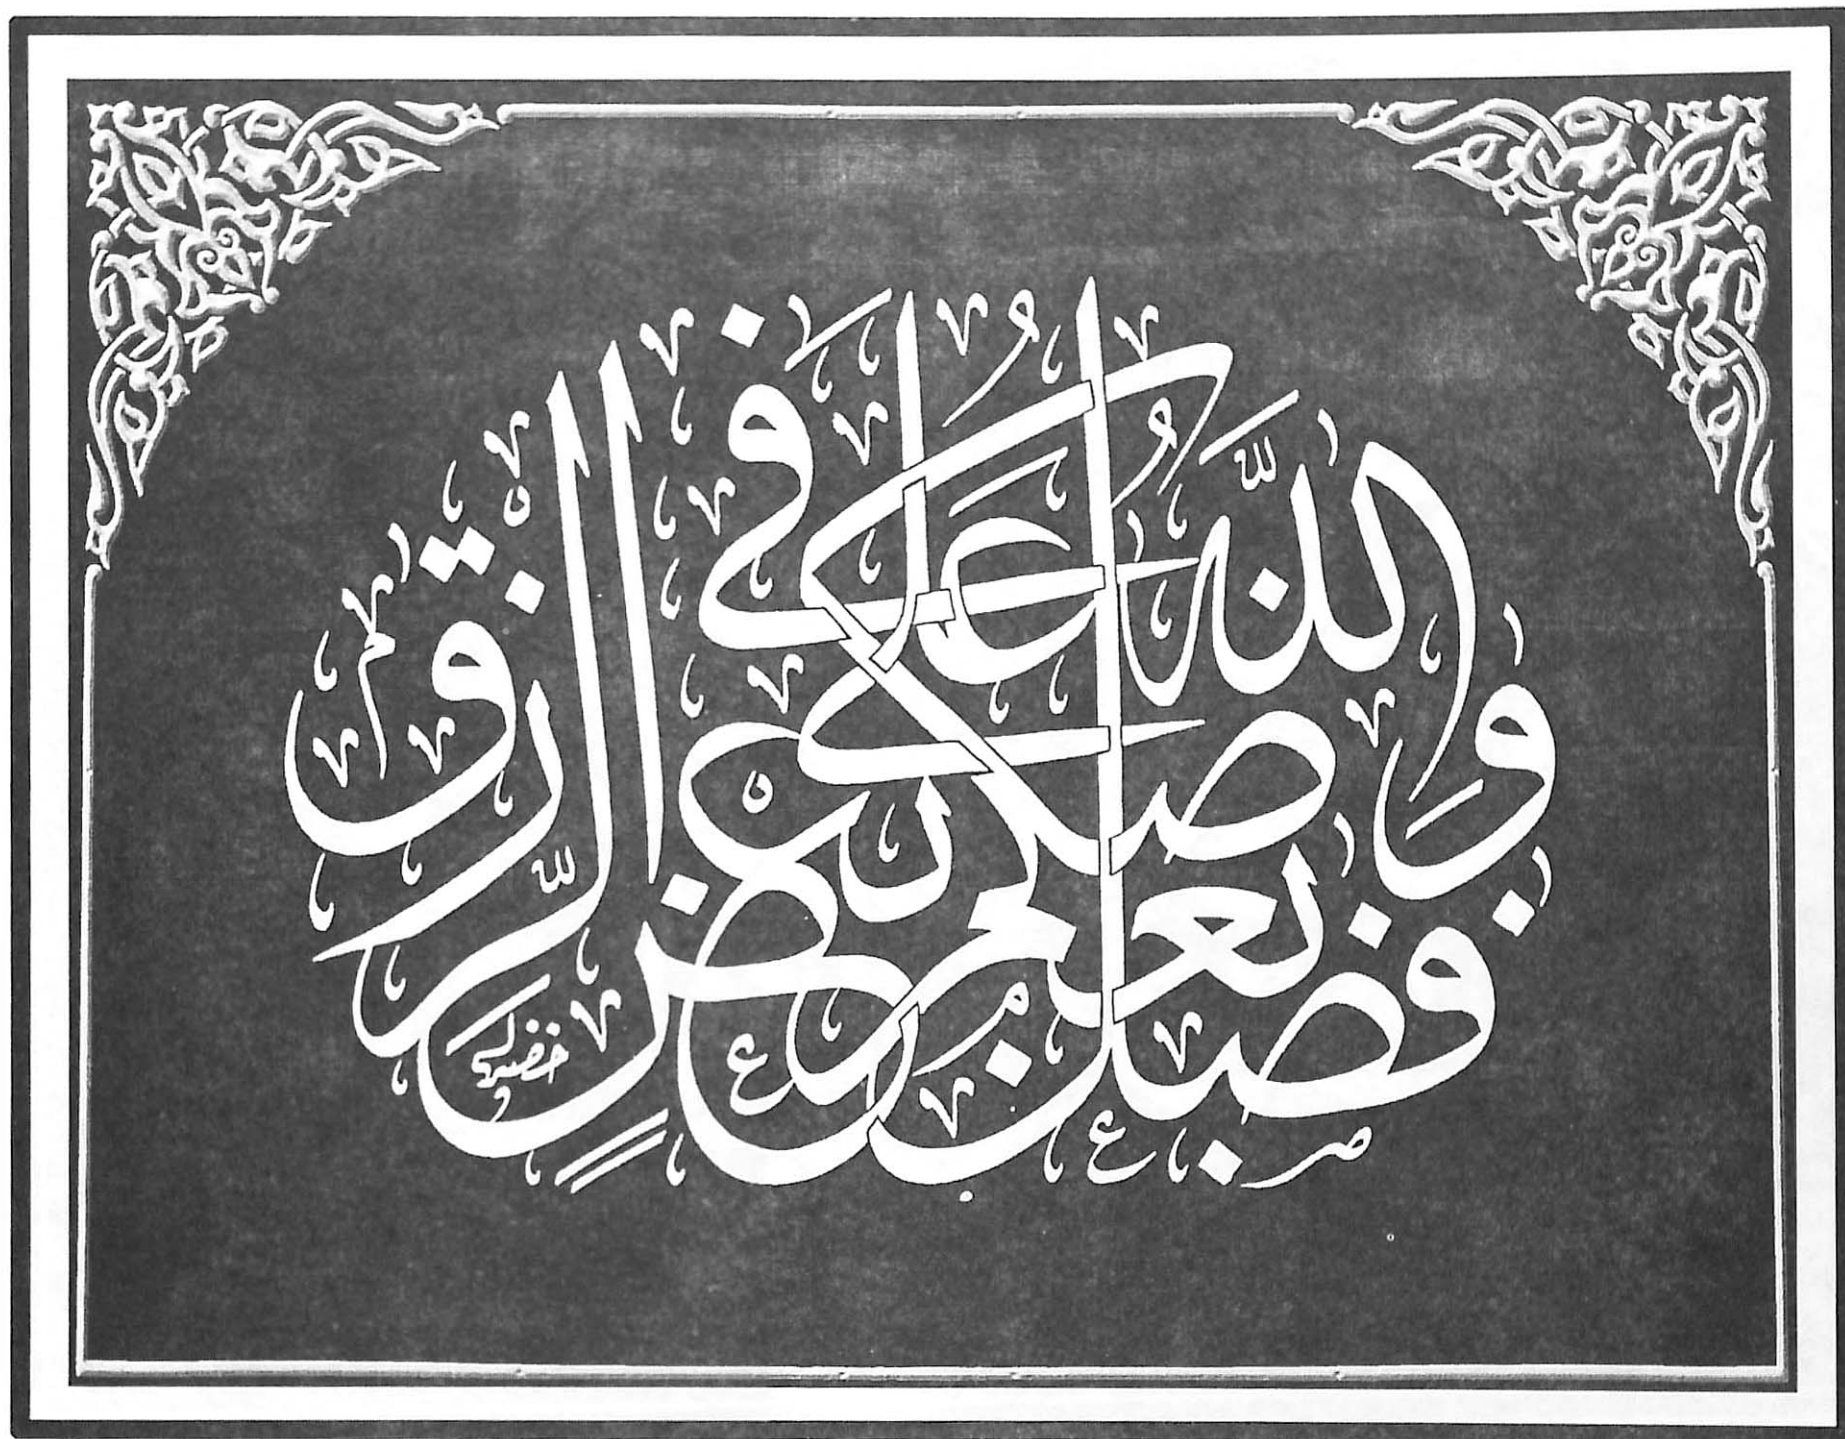 وَاللّٰهُ فَضَّلَ بَعْضَكُمْ عَلَى بَعْضٍ فِي الرِّزْقِ